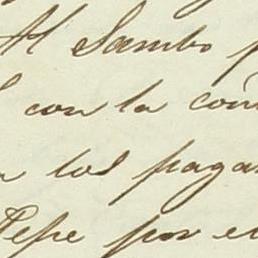 Al Sambo p
con la com
los pagar
Pepe por e